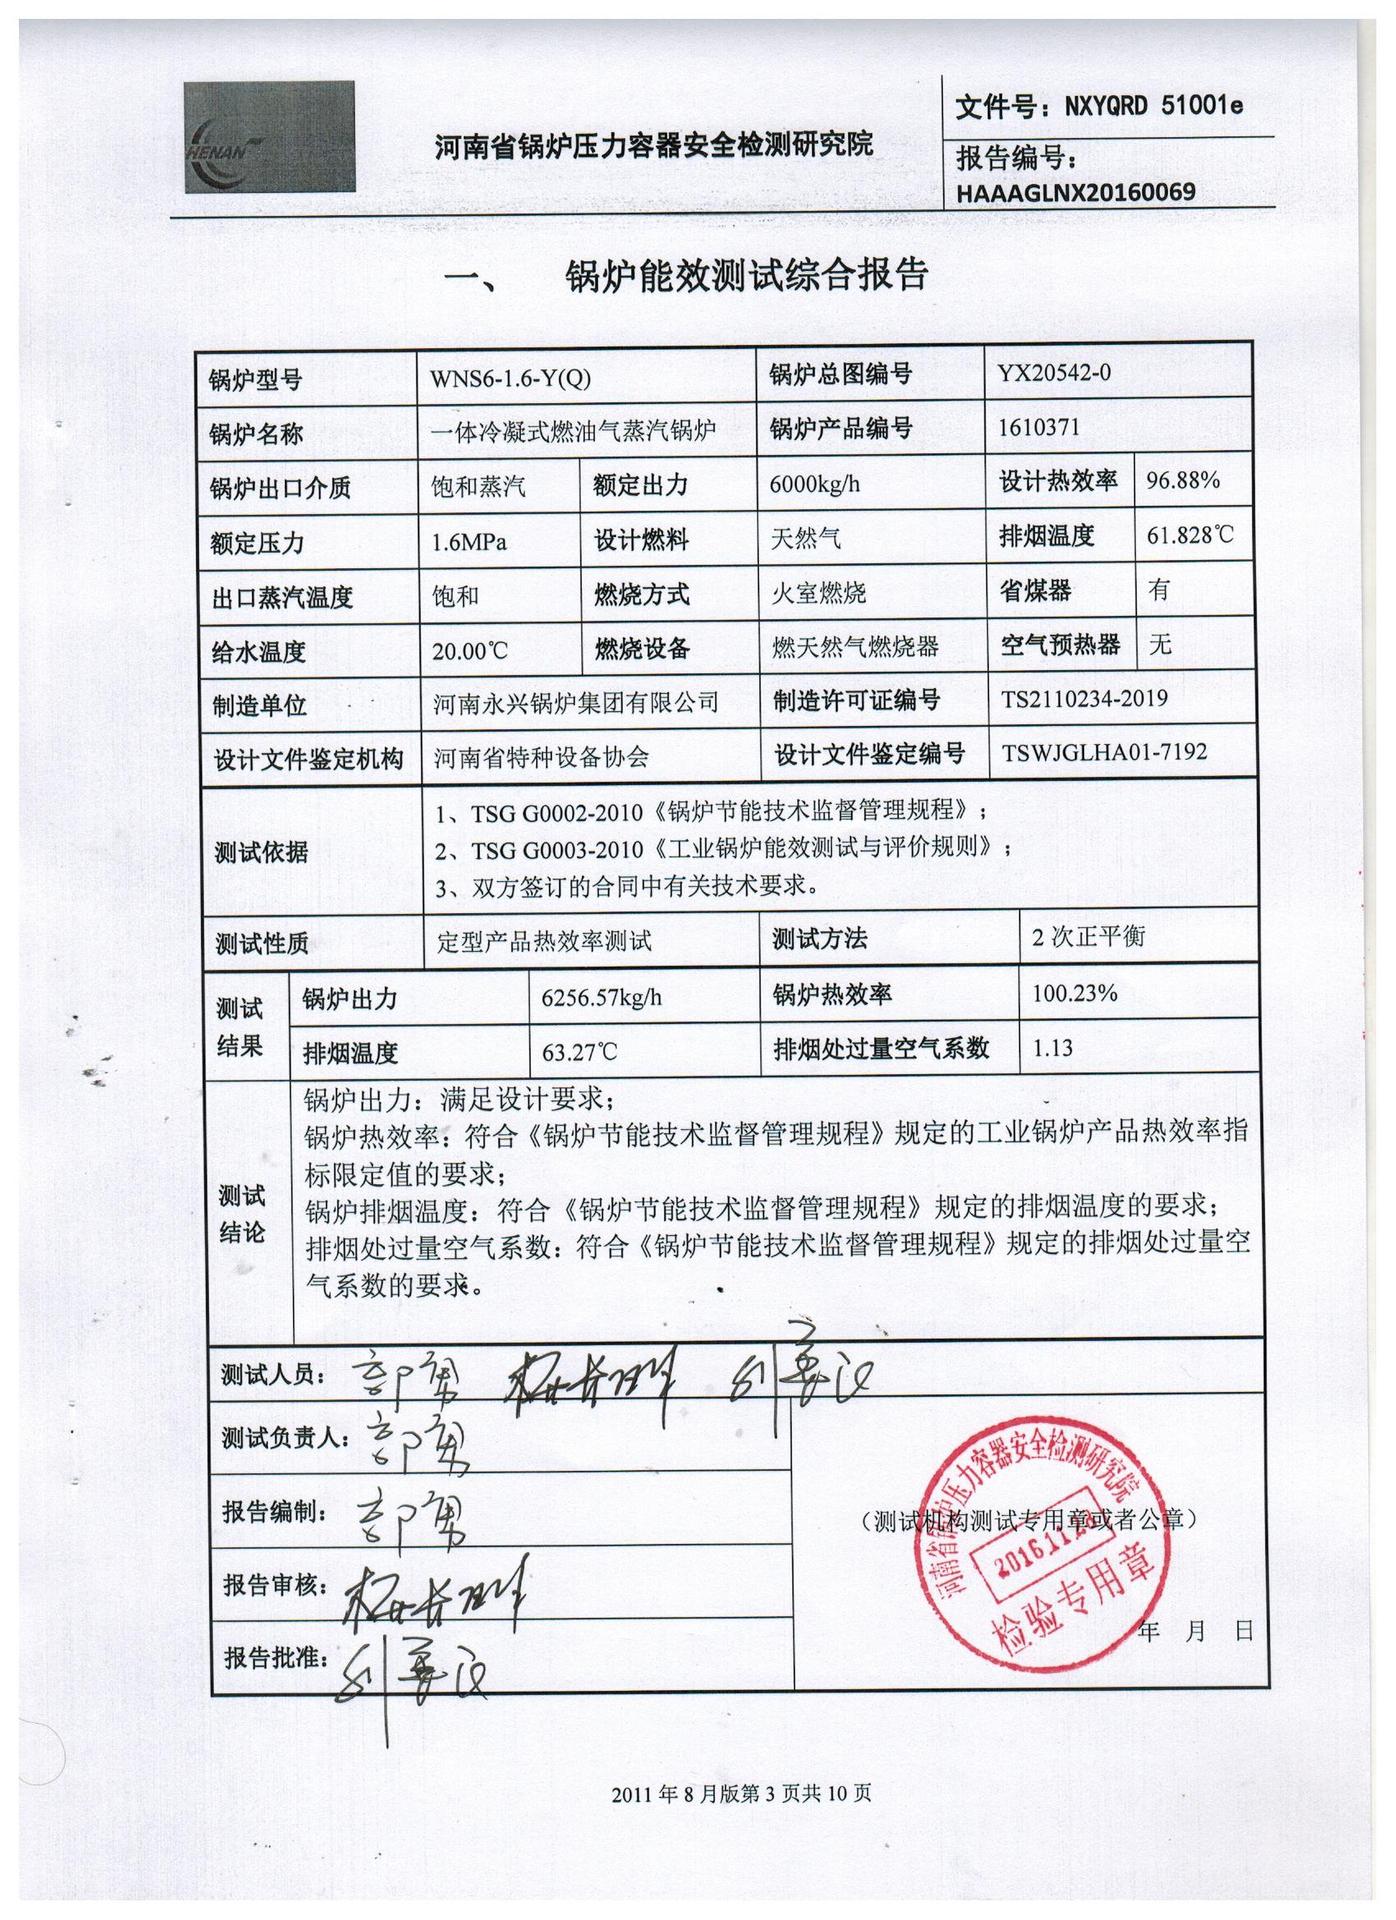 HENAN
河南省锅炉压力容器安全检测研究院
文件号：NXYQRD 51001e
报告编号：
HAAAGLNX20160069
一、 锅炉能效测试综合报告
锅炉型号 WNS6-1.6-Y(Q) 锅炉总图编号 YX20542-0
锅炉名称 一体冷凝式燃油气蒸汽锅炉 锅炉产品编号 1610371
锅炉出口介质 饱和蒸汽 额定出力 6000kg/h 设计热效率 96.88%
额定压力 1.6MPa 设计燃料 天然气 排烟温度 61.828℃
出口蒸汽温度 饱和 燃烧方式 火室燃烧 省煤器 有
给水温度 20.00℃ 燃烧设备 燃天然气燃烧器 空气预热器 无
制造单位 河南永兴锅炉集团有限公司 制造许可证编号 TS2110234-2019
设计文件鉴定机构 河南省特种设备协会 设计文件鉴定编号 TSWJGLHA01-7192
测试依据
1、TSG G0002-2010《锅炉节能技术监督管理规程》；
2、TSG G0003-2010《工业锅炉能效测试与评价规则》；
3、双方签订的合同中有关技术要求。
测试性质 定型产品热效率测试 测试方法 2 次正平衡
测试
结果
锅炉出力 6256.57kg/h 锅炉热效率 100.23%
排烟温度 63.27℃ 排烟处过量空气系数 1.13
测试
结论
锅炉出力：满足设计要求；
锅炉热效率：符合《锅炉节能技术监督管理规程》规定的工业锅炉产品热效率指
标限定值的要求；
锅炉排烟温度：符合《锅炉节能技术监督管理规程》规定的排烟温度的要求；
排烟处过量空气系数：符合《锅炉节能技术监督管理规程》规定的排烟处过量空
气系数的要求。
测试人员：
测试负责人：
报告编制：
报告审核：
报告批准：
（测试机构测试专用章或者公章）
年 月 日
河南省锅炉压力容器安全检测研究院
检验专用章
2011 年 8 月版第 3 页共 10 页